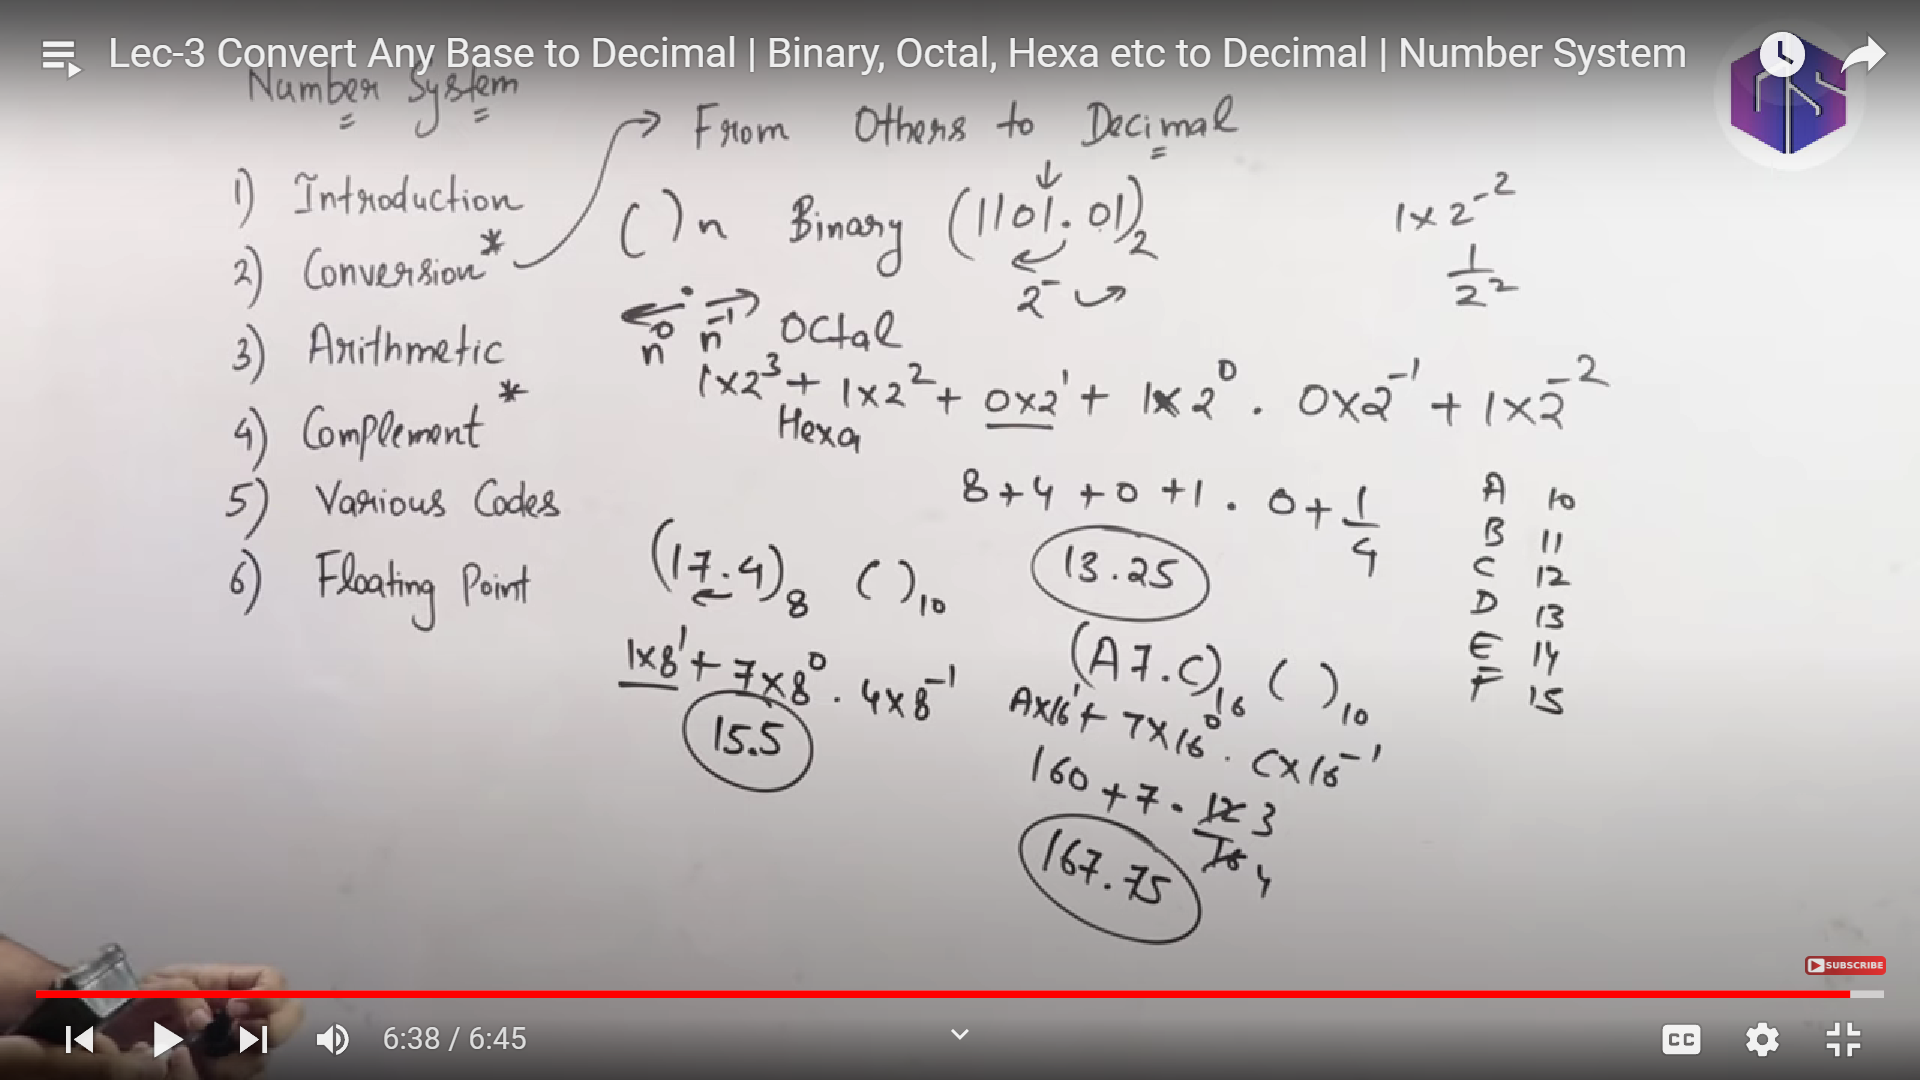 Lec-3 Convert Any Base to Decimal | Binary, Octal, Hexa etc to Decimal | Number System
Number System
1) Introduction
2) Conversion*
3) Arithmetic
4) Complement*
5) Various Codes
6) Floating Point
From Others to Decimal
( )n Binary (1101.01)₂
2⁻
n⁰ n⁻¹ Octal
1x2³ + 1x2² + 0x2¹ + 1x2⁰ . 0x2⁻¹ + 1x2⁻²
Hexa
8+4+0+1 . 0+1/4
13.25
1x2⁻²
1/2²
(17.4)₈ ( )₁₀
1x8¹ + 7x8⁰ . 4x8⁻¹
15.5
(A7.C)₁₆ ( )₁₀
Ax16¹ + 7x16⁰ . Cx16⁻¹
160+7 . 12/16 3/4
167.75
A 10
B 11
C 12
D 13
E 14
F 15
SUBSCRIBE
6:38 / 6:45
CC